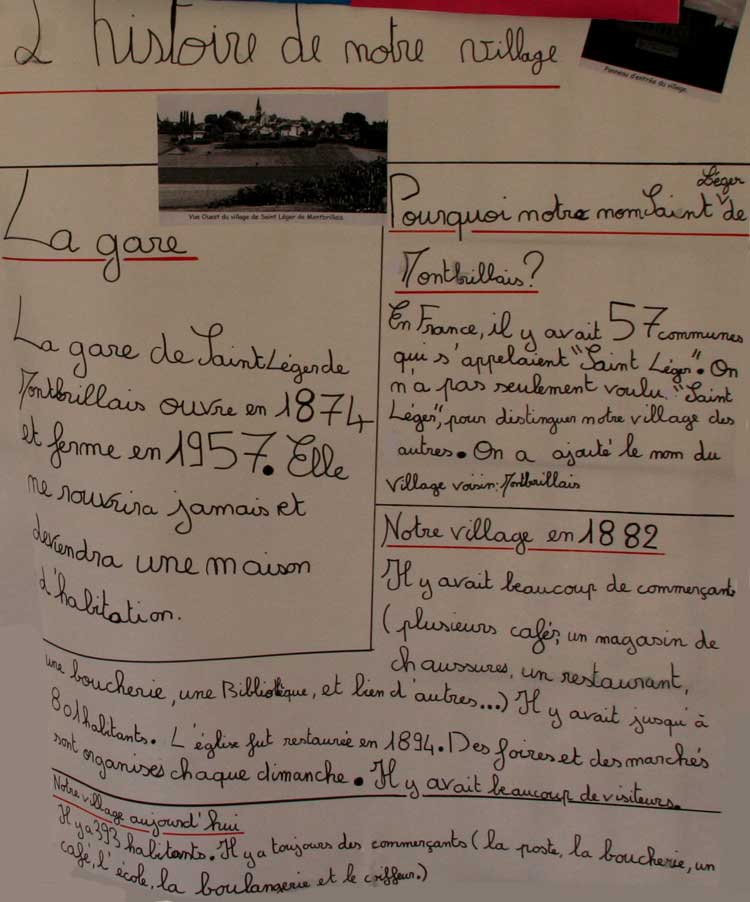 L'histoire de notre village
Panneau d'entrée du village.
Vue Ouest du village de Saint Léger de Montbrillais.
La gare
La gare de Saint Léger de
Montbrillais ouvre en 1874
et ferme en 1957. Elle
ne rouvrira jamais et
deviendra une maison
d'habitation.
Pourquoi notre nom Saint Léger de
Montbrillais?
En France, il y avait 57 communes
qui s'appelaient "Saint Léger". On
n'a pas seulement voulu "Saint
Léger", pour distinguer notre village des
autres. On a ajouté le nom du
village voisin: Montbrillais
Notre village en 1882
Il y avait beaucoup de commerçants
(plusieurs cafés, un magasin de
chaussures, un restaurant,
une boucherie, une Bibliotèque, et bien d'autres...) Il y avait jusqu'à
801 habitants. L'église fut restaurée en 1894. Des foires et des marchés
sont organisés chaque dimanche. Il y avait beaucoup de visiteurs.
Notre village aujourd'hui
Il y a 393 habitants. Il y a toujours des commerçants (la poste, la boucherie, un
café, l'école, la boulangerie et le coiffeur.)